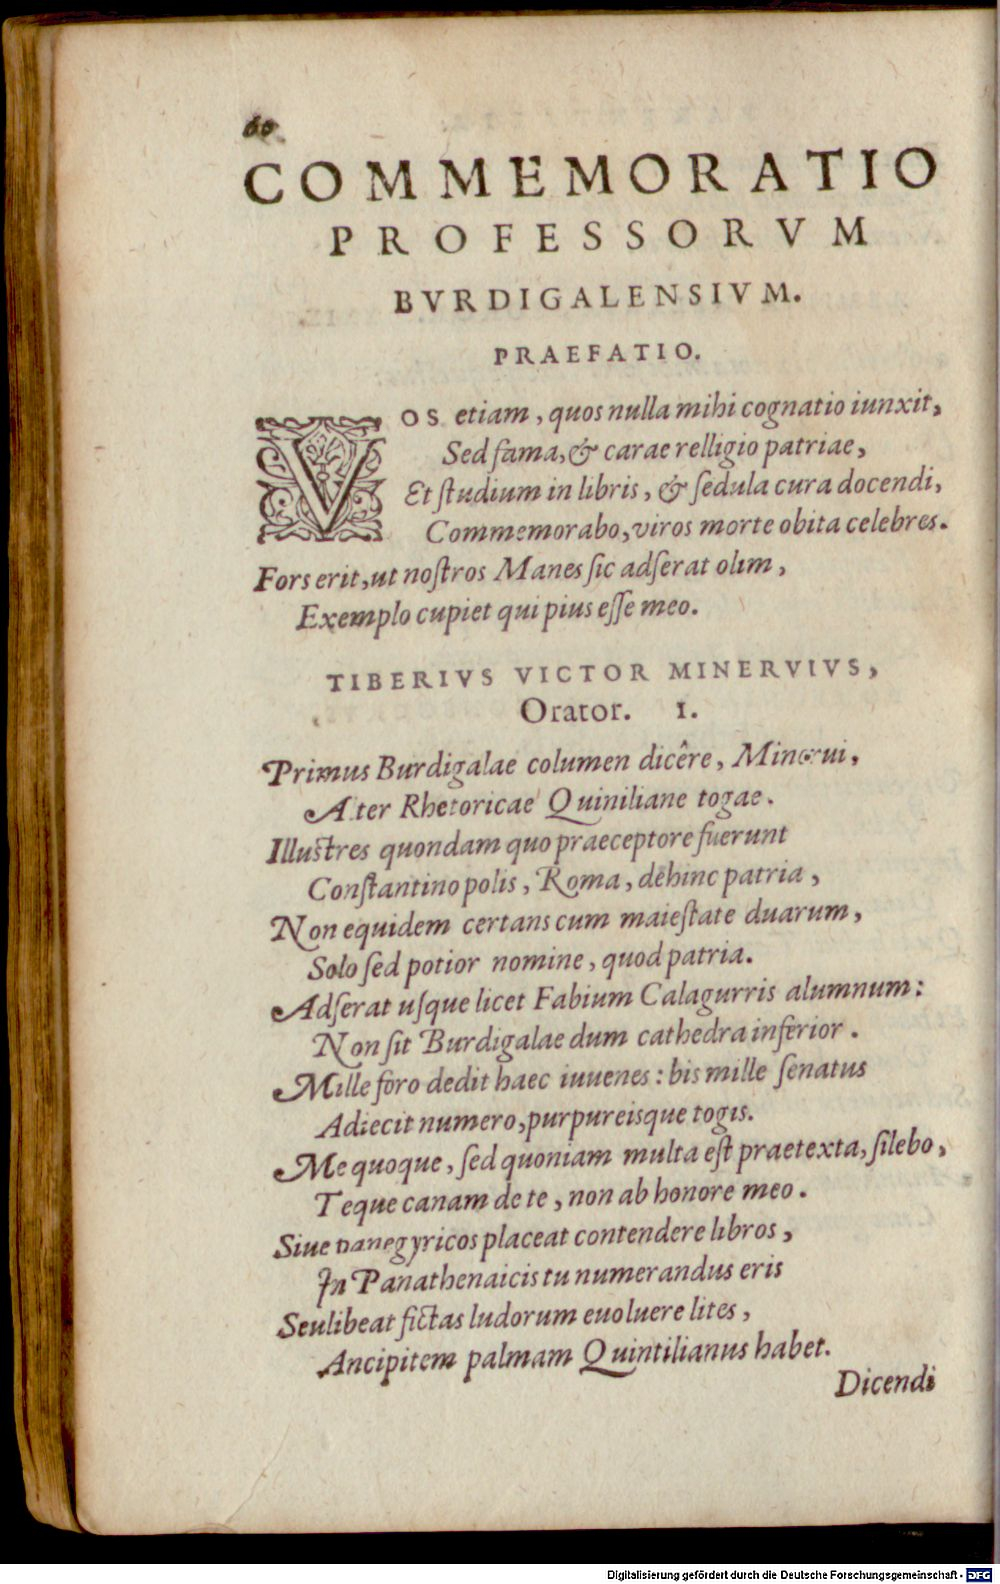 60
COMMEMORATIO
PROFESSORVM
BVRDIGALENSIVM.
PRAEFATIO.
VOS etiam, quos nulla mihi cognatio iunxit,
Sed fama, & carae relligio patriae,
Et ſtudium in libris, & ſedula cura docendi,
Commemorabo, viros morte obita celebres.
Fors erit, ut noſtros Manes ſic adſerat olim,
Exemplo cupiet qui pius eſſe meo.
TIBERIVS VICTOR MINERVIVS,
Orator. 1.
Primus Burdigalae columen dicêre, Minerui,
Alter Rhetoricae Quiniliane togae.
Illuſtres quondam quo praeceptore fuerunt
Conſtantinopolis, Roma, dehinc patria,
Non equidem certans cum maieſtate duarum,
Solo ſed potior nomine, quod patria.
Adſerat uſque licet Fabium Calagurris alumnum:
Non ſit Burdigalae dum cathedra inferior.
Mille foro dedit haec iuuenes: bis mille ſenatus
Adiecit numero, purpureisque togis.
Me quoque, ſed quoniam multa eſt praetexta, ſilebo,
Teque canam de te, non ab honore meo.
Siue panegyricos placeat contendere libros,
In Panathenaicis tu numerandus eris
Seu libeat fictas ludorum euoluere lites,
Ancipitem palmam Quintilianus habet.
Dicendi
Digitalisierung gefördert durch die Deutsche Forschungsgemeinschaft - DFG